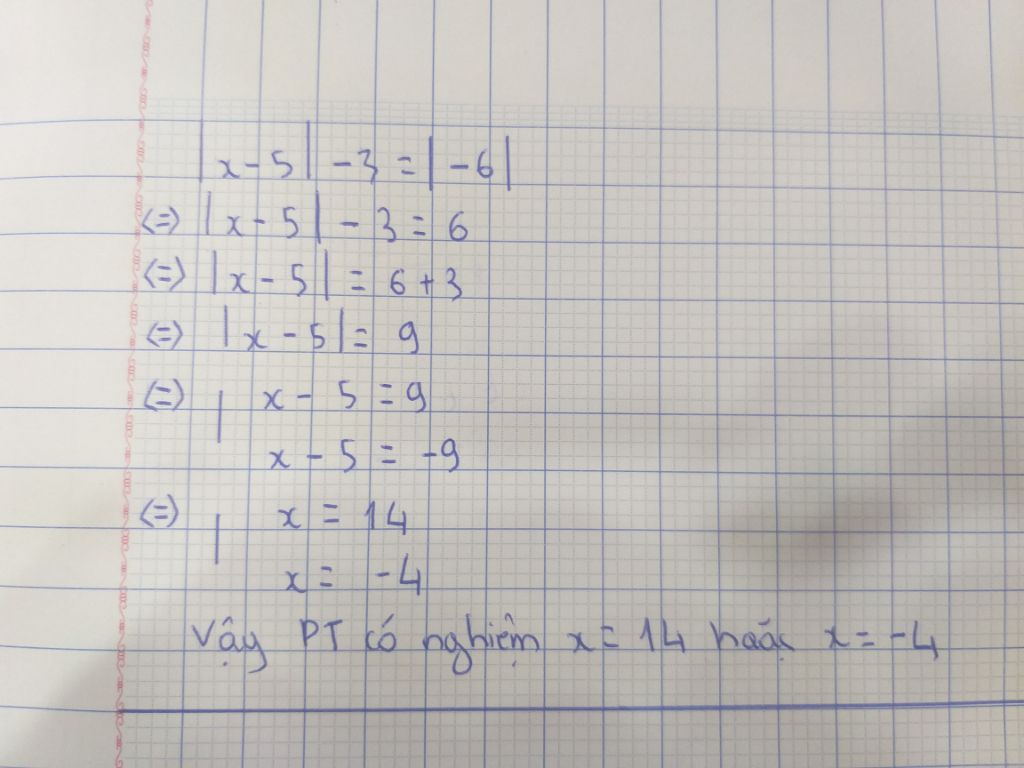 |x - 5| - 3 = |-6|
(=) |x - 5| - 3 = 6
(=) |x - 5| = 6 + 3
(=) |x - 5| = 9
(=) | x - 5 = 9
x - 5 = -9
(=) | x = 14
x = -4
Vậy PT có nghiệm x = 14 hoặc x = -4